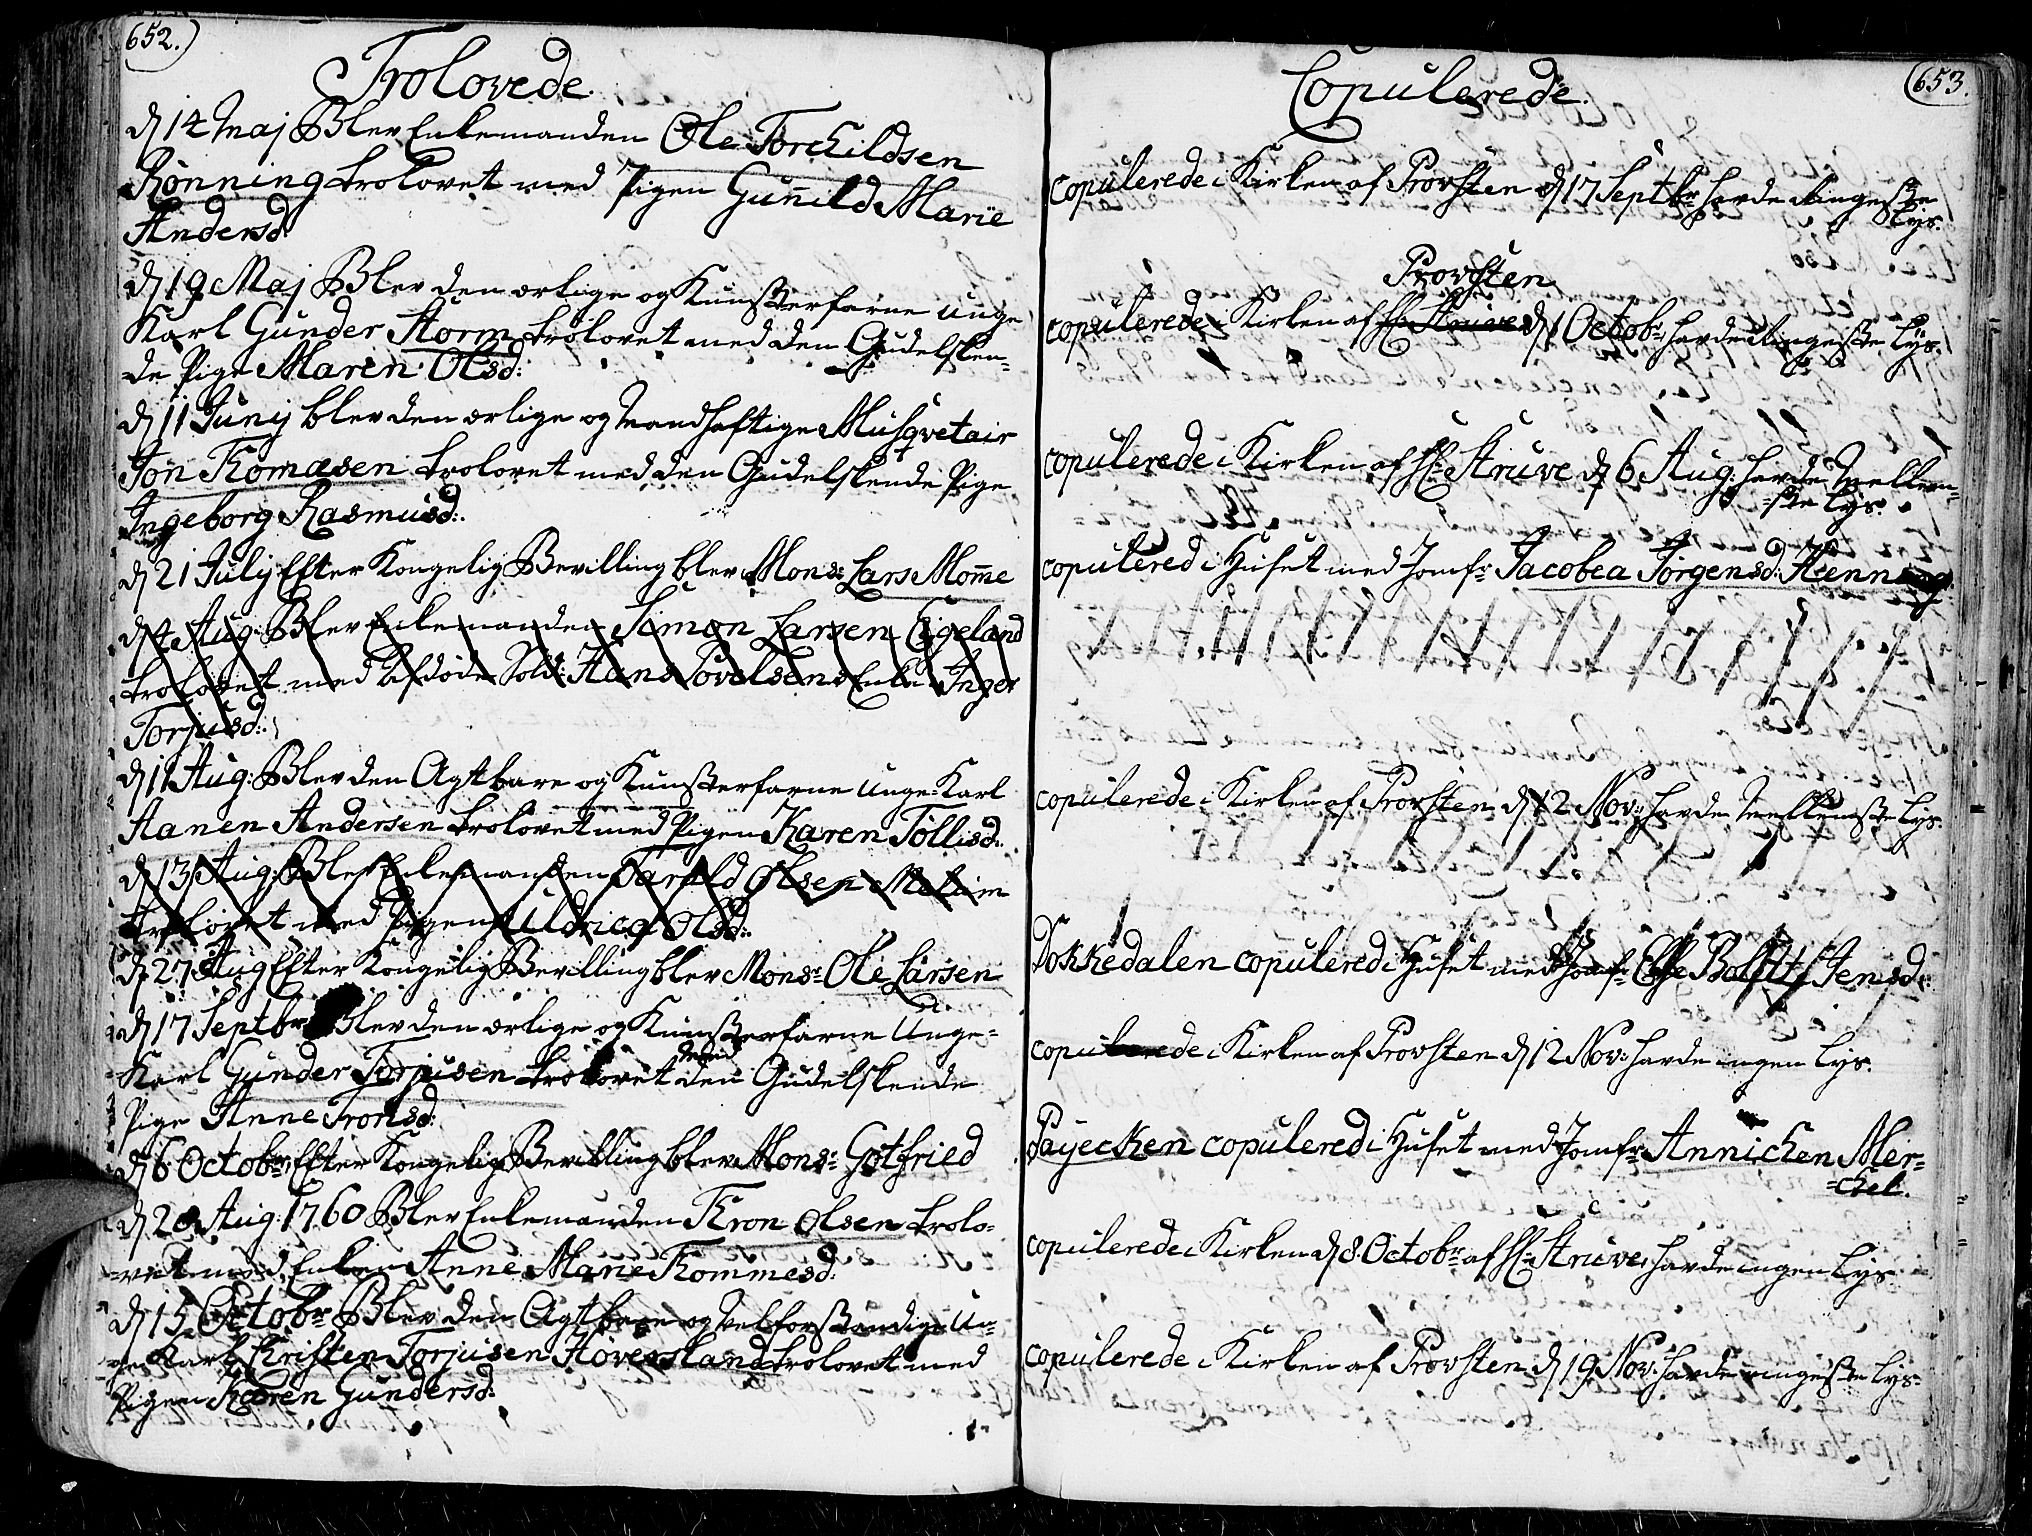 652.)
Trolovede.
d 14 Maj Blev Enkemanden Ole Torchildsen
Rönning trolovet med Pigen Gunnild Marie
Andersd:
d 19 Maj Blev den ærlige og Kunsterfarne unge
Karl Gunder Storm trolovet med den Gudelsken-
de Pige Maren Olsd:
d 11 Junij blev den ærlige og Mandhaftige Musqvetair
Jon Thomæsen trolovet med den Gudelskende Pige
Ingeborg Rasmusd:
d 21 Julij Efter Kongelig Bevilling blev Monsr: Lars Momme
d 4 Aug: Blev Enkemanden Simon Larsen Eigeland
trolovet med Afdøde Sold: Hans Povelsens Enke Inger
Torjusd:
d 11 Aug: Blev den Agtbare og Kunsterfarne unge Karl
Aanen Andersen trolovet med Pigen Karen Tollisd:
d 13 Aug: Blev Enkemanden Tarald Olsen
trolovet med Pigen Uldrica Olsd:
d 27 Aug Efter Kongelig Bevilling blev Monsr: Ole Larsen
d 17 Septbr: Blev den ærlige og Kunsterfarne Unge-
Karl Gunder Torjusen trolovet med den Gudelskende
Pige Anne Tronsd:
d 6 Octobr: Efter Kongelig Bevilling blev Monsr: Gotfried
d 20 Aug: 1760 Blev Enkemanden Thron Olsen trolo-
vet med Enken Anne Marie Thommesd:
d 15 Octobr: Blev den Agtbare og Velforstandige Un-
ge Karl Christen Torjusen Höversland trolovet med
Pigen Karen Gundersd:
(653.
Copulerede.
copulerede i Kirken af Provsten d 17 Septbr: havde Ringeste
Lys.
Provsten
copulerede i Kirken af Hr: Struve d 1 Octobr: havde Ringeste Lys.
copulerede i Kirken af Hr: Struve d 6 Aug: havde Mellem-
ste Lys.
copulered i Huset med Jomfr: Jacobea Jörgensd: Henning
copulerede i Kirken af Provsten d 12 Nov: havde Mellemste Lys.
Dokkedalen copulered i Huset med Jomfr: Else Jensd:
copulerede i Kirken af Provsten d 12 Nov: havde ingen Lys.
Payecken copulered i Huset med Jomfr: Annichen Mer-
chel.
copulerede i Kirken d 8 Octobr: af Hr: Struve, havde ingen Lys
copulerede i Kirken af Provsten d 19 Nov: havde ringeste Lys.